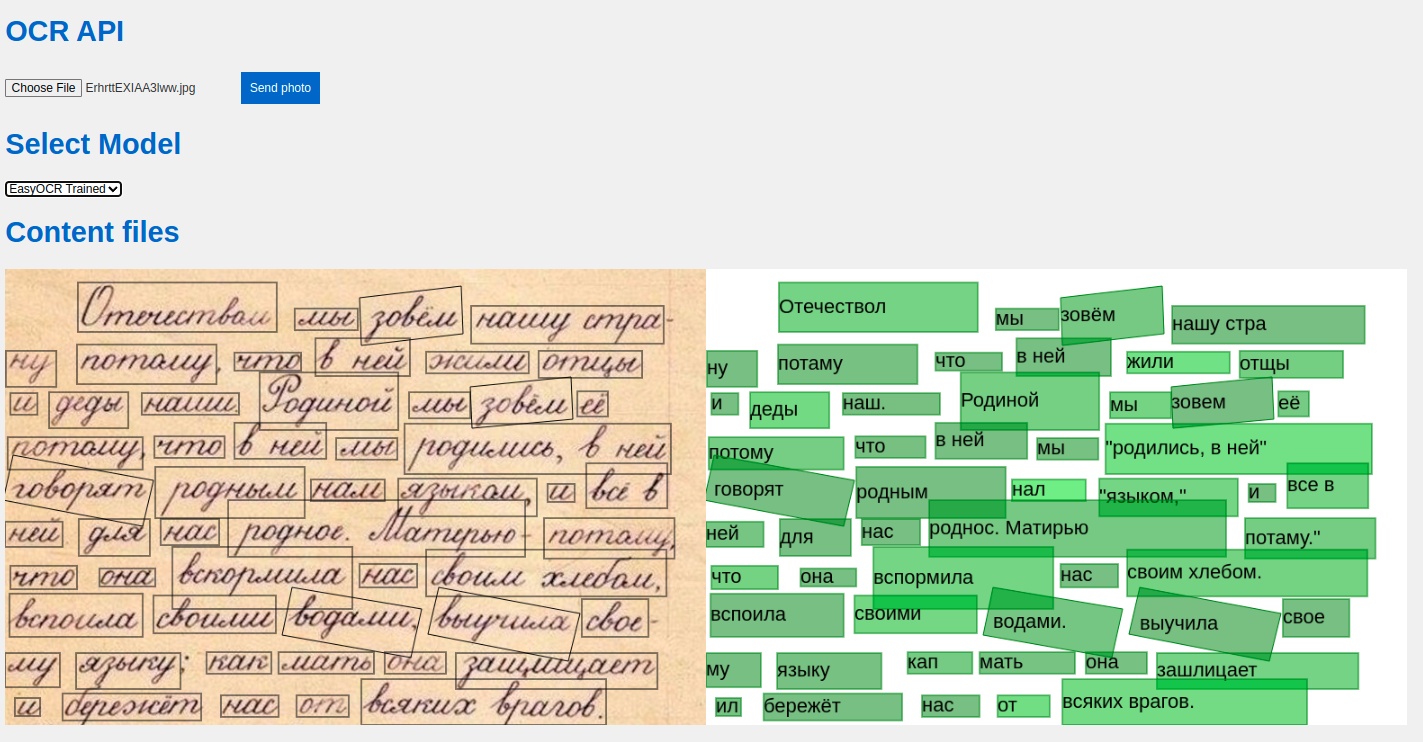 OCR API
Choose File ErhrttEXIAA3lww.jpg Send photo
Select Model
EasyOCR Trained
Content files
Отечеством мы зовём нашу стра-
ну потому, что в ней жили отцы
и деды наши. Родиной мы зовём её
потому, что в ней мы родились, в ней
говорят родным нам языком, и всё в
ней для нас родное. Матерью- потому,
что она вскормила нас своим хлебом,
вспоила своими водами, выучила свое-
му языку; как мать она защищает
и бережёт нас от всяких врагов.
Отечествол мы зовём нашу стра
ну потаму что в ней жили отщы
и деды наш. Родиной мы зовем её
потому что в ней мы "родились, в ней"
говорят родным нал "языком," и все в
ней для нас роднос. Матирью потаму."
что она вспормила нас своим хлебом.
вспоила своими водами. выучила свое
му языку кап мать она зашлицает
ил бережёт нас от всяких врагов.